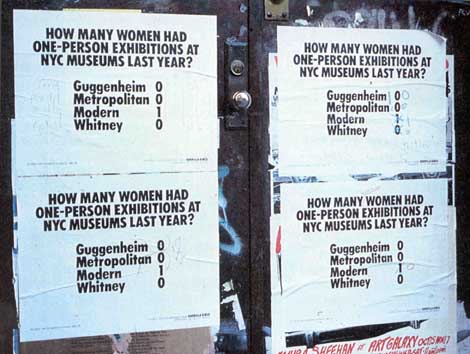 HOW MANY WOMEN HAD
ONE-PERSON EXHIBITIONS AT
NYC MUSEUMS LAST YEAR?
Guggenheim 0
Metropolitan 0
Modern 1
Whitney 0
HOW MANY WOMEN HAD
ONE-PERSON EXHIBITIONS AT
NYC MUSEUMS LAST YEAR?
Guggenheim 0
Metropolitan 0
Modern 1
Whitney 0
HOW MANY WOMEN HAD
ONE-PERSON EXHIBITIONS AT
NYC MUSEUMS LAST YEAR?
Guggenheim 0
Metropolitan 0
Modern 1
Whitney 0
HOW MANY WOMEN HAD
ONE-PERSON EXHIBITIONS AT
NYC MUSEUMS LAST YEAR?
Guggenheim 0
Metropolitan 0
Modern 1
Whitney 0
SHEEHAN AT ART GALAXY